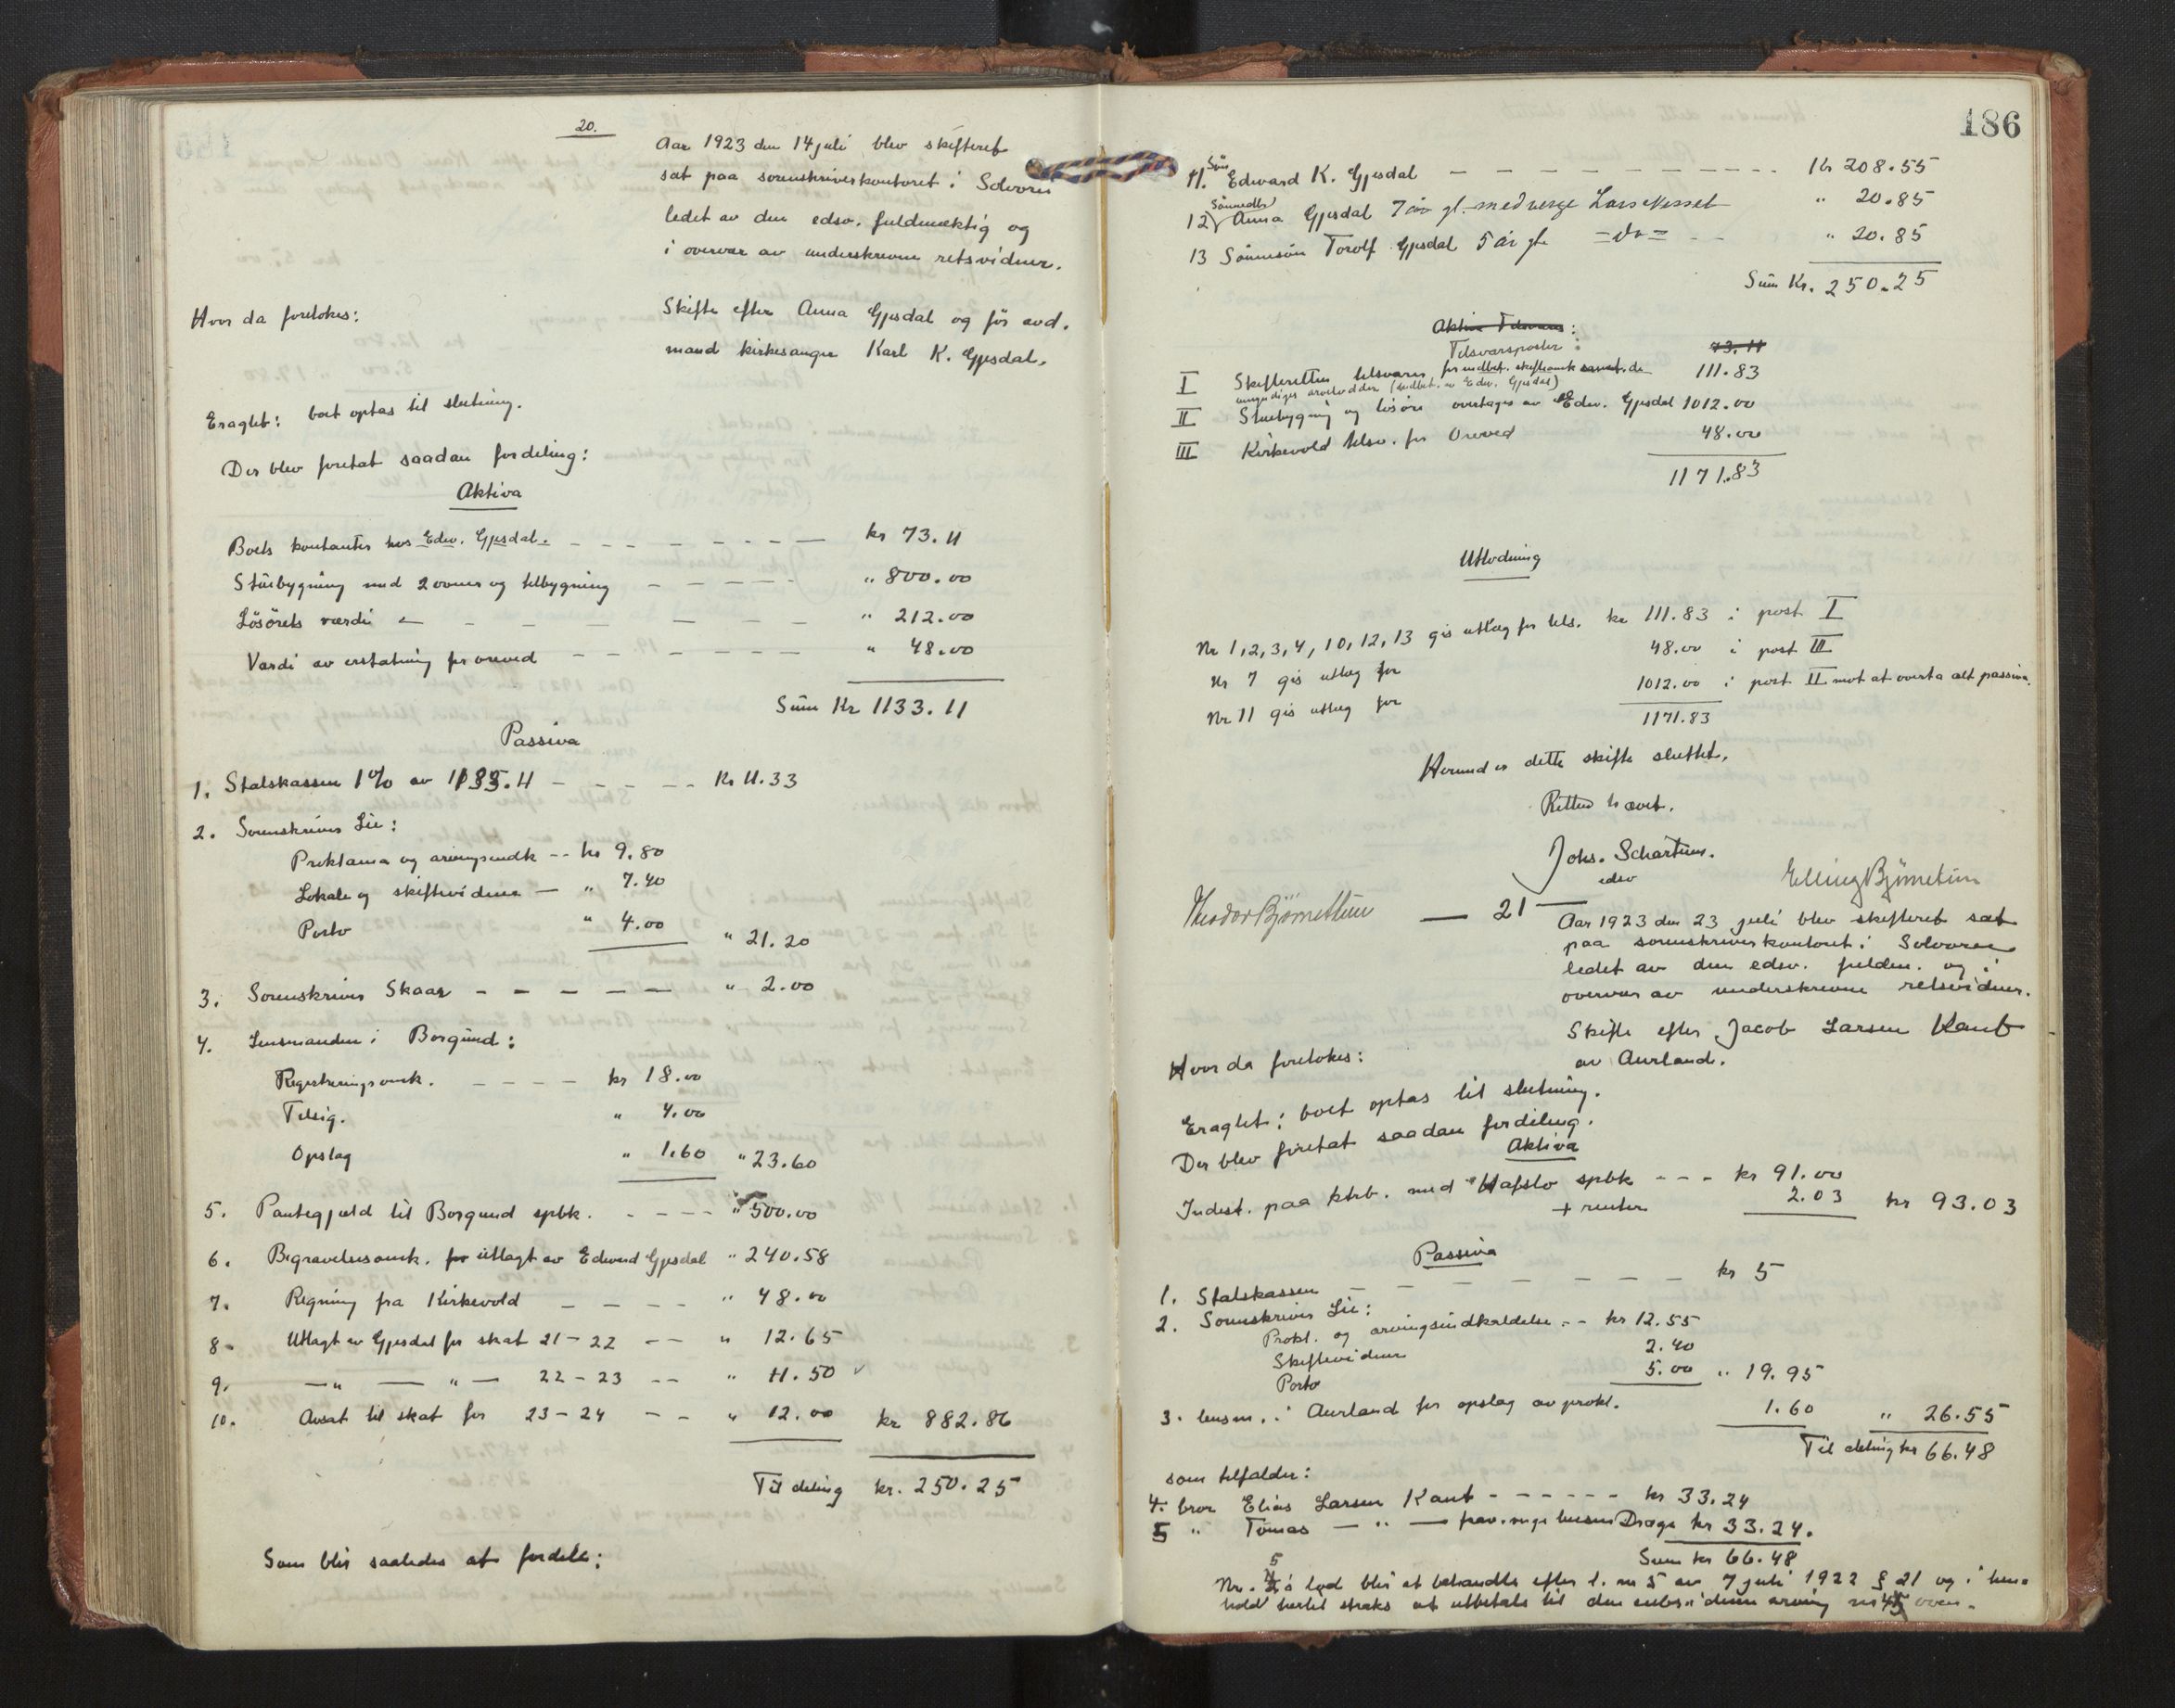 20.
Aar 1923 den 14 juli blev skifteret
sat paa sorenskriverkontoret i Solvorn
ledet av den edsv. fuldmæktig og
i overvær av underskrevne retsvidner.
Hvor da foretokes:
Skifte efter Anna Gjesdal og før avd.
mand kirkesanger Karl K. Gjesdal.
Eragtet: boet optas til slutning.
Der blev foretat saadan fordeling:
Aktiva
Boets kontanter hos Edw. Gjesdal. - - - - - - - - kr 73.11
Stuebygning med 2 ovner og tilbygning - - - - - " 800.00
Løsørets værdi - - - - - - - " 212.00
Værdi av erstatning for oreved - - - - - - - " 48.00
Sum Kr 1133.11
Passiva
1. Statskassen 1% av 1133.11 - - - - - Kr 11.33
2. Sorenskriver Lie:
Proklama og arvingsindk -- kr 9.80
Lokale og skiftevidner - " 7.40
Porto " 4.00 " 21.20
3. Sorenskriver Skaar - - - - - " 2.00
4. Lensmanden i Borgund:
Registreringsomk. - - - - kr 18.00
Tilsig. " 4.00
Opslag " 1.60 " 23.60
5. Pantegjæld til Borgund spbk. - - - - " 500.00
6. Begravelsesomk. utlagt av Edward Gjesdal " 240.58
7. Regning fra Kirkevold - - - - " 48.00
8. Utlagt av Gjesdal for skat 21-22 - - " 12.65
9. -"- -"- 22-23 -- " 11.50
10. Avsat til skat for 23-24 - - " 12.00 kr 882.86
Til deling kr. 250.25
Som blir saaledes at fordele:
186
11. Søn Edward K. Gjesdal - - - - - - - - - - Kr 208.55
12) Sønnedtr Anna Gjesdal 7 år gl. med verge Lars Nesset " 20.85
13 Sønnesøn Torolf Gjesdal 5 år gl. = do = - - " 20.85
Sum Kr. 250.25
Tilsvarsposter: 73.11
I Skifteretten tilsvarer for indbet. skifteomk samt de 111.83
umyndiges arvelodder (indbet. av Edw. Gjesdal)
II Stuebygning og løsøre overtages av Edw. Gjesdal 1012.00
III Kirkevold tilsv. for Oreved 48.00
1171.83
Utlodning
Nr 1,2,3,4,10,12,13 gis utlæg for tils. kr 111.83 i post I
Nr 7 gis utlæg for 48.00 i post III
Nr 11 gis utlæg for 1012.00 i post II mot at overta alt passiva.
1171.83
Hermed er dette skifte sluttet.
Retten hævet.
Johs. Schartum.
edsv
Theodor Bjørnetun Elling Bjørnetun
- 21 -
Aar 1923 den 23 juli blev skifteret sat
paa sorenskriverkontoret i Solvorn
ledet av den edsv. fuldm. og i
overvær av underskrevne retsvidner.
Hvor da foretokes:
Skifte efter Jacob Larsen Kant
av Aurland.
Eragtet: boet optas til slutning.
Der blev foretat saadan fordeling.
Aktiva
Indest. paa ktrb. med Hafslo spbk - - - kr 91.00
+ renter 2.03 kr 93.03
Passiva
1. Statskassen - - - - - - - kr 5
2. Sorenskriver Lie:
Prokl. og arvingsindkaldelse -- kr 12.55
Skiftevidner 2.40
Porto 5.00 " 19.95
3. lensm. i Aurland for opslag av prokl. 1.60 " 26.55
Til deling kr 66.48
som tilfalder:
4. bror Elias Larsen Kant - - - - - - kr 33.24
5 " Tomas - " - lensm Drage kr 33.24.
Sum kr 66.48
Nr. 5's lod blir at behandle efter l. nr 5 av 7 juli 1922 § 21 og i hen-
hold hertil straks at utbetale til den subsidiære arving nr 4 oven.